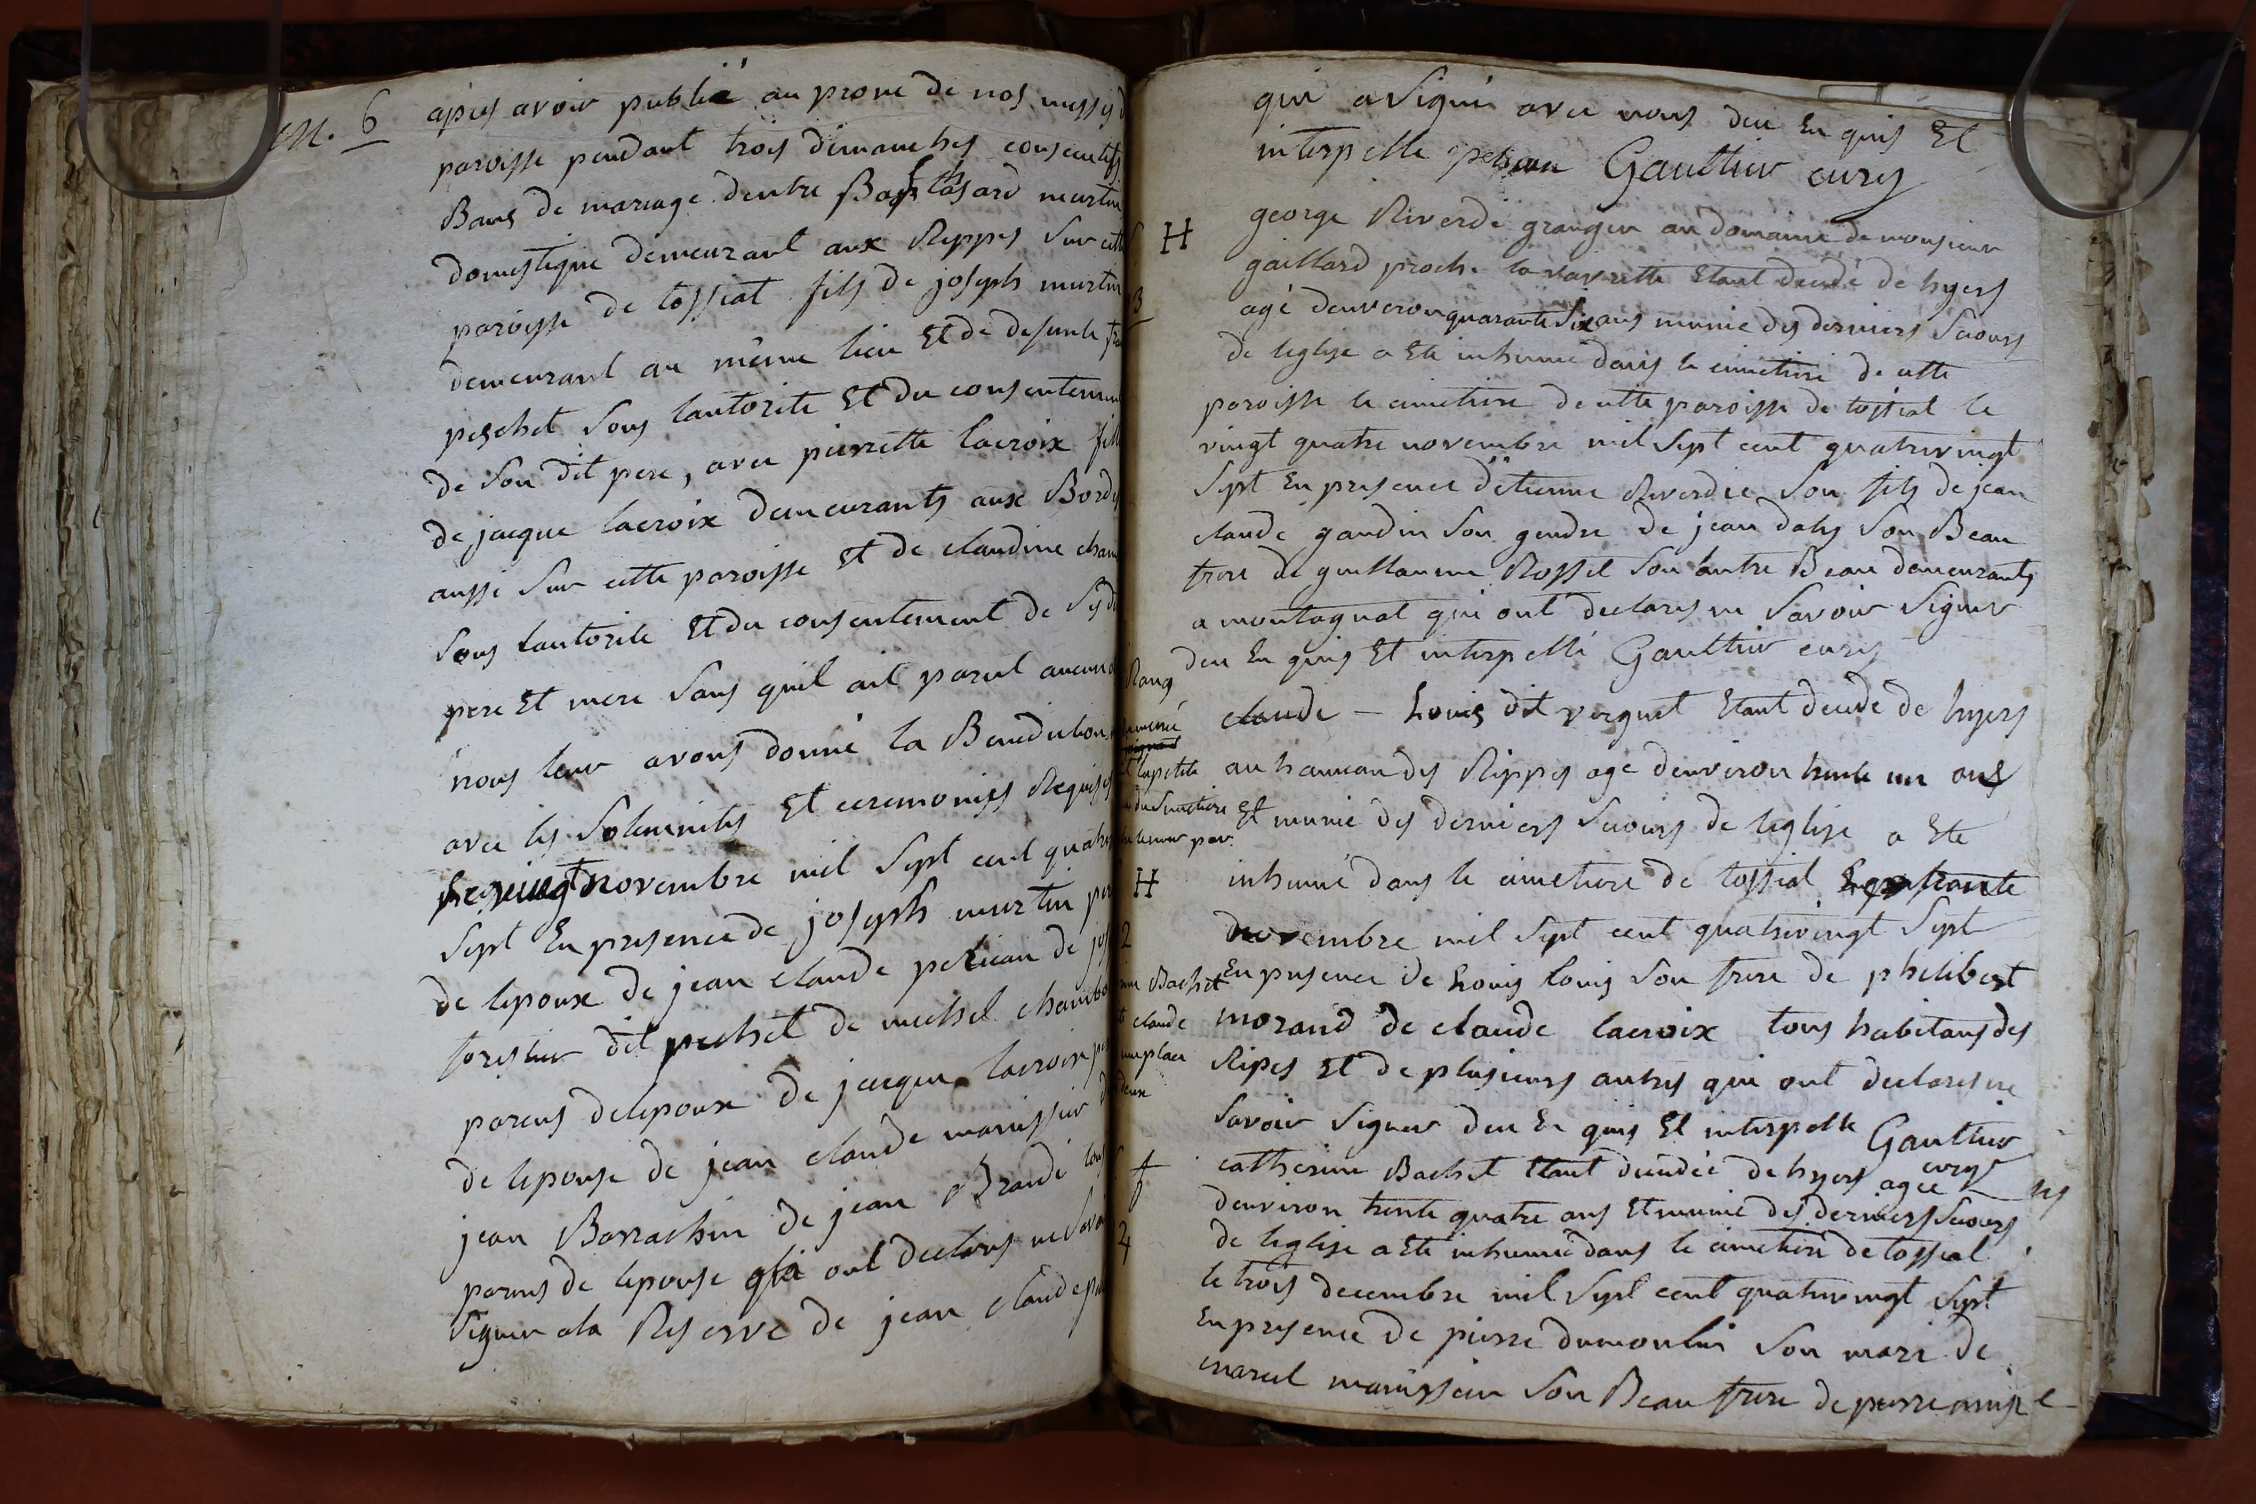 M. 6
apres avoir publié au prone de nos messes d
paroisse pendant trois dimanches consecutifs
Bans de mariage dentre Balthasard murtin
domestique demeurant aux Rippes sur cette
paroisse de tossiat fils de joseph murtin
demeurant au même lieu Et de defunte fra
peschet sous lautorite Et du consentement
de son dit pere, avec pierrette lacroix fille
de jacque lacroix demeurants aux Bordes
aussi sur cette paroisse Et de claudine cham
sous lautorite Et du consentement de sesd
pere Et mere sans quil ait parut aucun
nous leur avons donné la Benediction
avec les solemnités Et ceremonies Requises
le vingt novembre mil sept cent quatre
sept En presence de joseph murtin per
de lepoux de jean claude pelican de jos
forestier dit pechet de michel chambo
parens delepoux de jacque lacroix per
de lepouse de jean claude manissier
jean Barrachin de jean Brandi tous
parens de lepouse qui ont declares ne savoir
signer ala Reserve de jean claude pe
qui a signé avec nous deu En quis Et
interpelle pelican Gaulthier curé
H george Riverdi granger au domaine de monsieur
gaillard proche la vavrette Etant decedé de hyers
agé denveron quarante six ans munie des derniers secours
de leglise a Ete inhumé dans le cimetiere de cette
paroisse le cimetiere de cette paroisse de tossiat le
vingt quatre novembre mil sept cent quatrevingt
sept En presence d'etienne Riverdie son fils de jean
claude gaudin son gendre de jean daly son Beau
frere de guillaume Rossel son autre Beau demeurants
a montagnat qui ont declares ne savoir signer
deu En quis Et interpellé Gaulthier curé
claude – Louis dit verguet Etant decede de hyers
au hameau des Rippes age denviron trente un ans
Et munie des derniers secours de leglise a Ete
H inhumé dans le cimetiere de tossiat le trente
novembre mil sept cent quatrevingt sept
En presence de Louis louis son frere de philibert
morand de claude lacroix tous habitans des
Ripes Et de plusieurs autres qui ont declares ne
savoir signer deu En quis Et interpelle Gaulthier
curé
f catherine Bachet Etant decedée de hyers agee
denviron trente quatre ans Et munie des derniers secours
de leglise a Ete inhumée dans le cimetiere de tossiat
le trois decembre mil sept cent quatrevingt sept
En presence de pierre dumoulin son mari de
marcel manissier son Beau frere de pierre